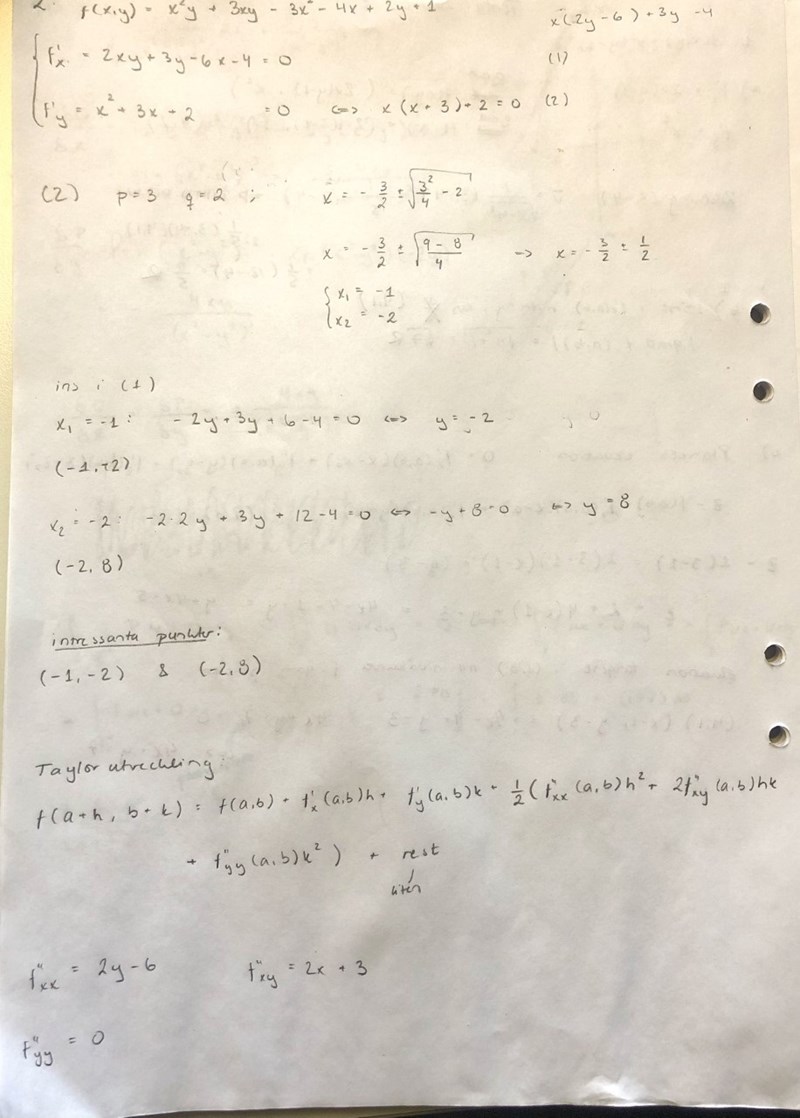 2. f(x,y) = x²y + 3xy - 3x² - 4x + 2y + 1
x(2y-6) + 3y - 4
f'x = 2xy + 3y - 6x - 4 = 0 (1)
f'y = x² + 3x + 2 = 0 <=> x(x+3) + 2 = 0 (2)
(2) p = 3 q = 2 ; x = -3/2 ± √(3²/4 - 2)
x = -3/2 ± √((9-8)/4) -> x = -3/2 ± 1/2
x₁ = -1
x₂ = -2
ins i (1)
x₁ = -1: -2y + 3y + 6 - 4 = 0 <=> y = -2
(-1, -2)
x₂ = -2: -2·2y + 3y + 12 - 4 = 0 <=> -y + 8 = 0 <=> y = 8
(-2, 8)
intressanta punkter:
(-1, -2) & (-2, 8)
Taylorutveckling:
f(a+h, b+k) = f(a,b) + f'x(a,b)h + f'y(a,b)k + 1/2(f''xx(a,b)h² + 2f''xy(a,b)hk
+ f''yy(a,b)k²) + rest
liten
f''xx = 2y - 6 f''xy = 2x + 3
f''yy = 0